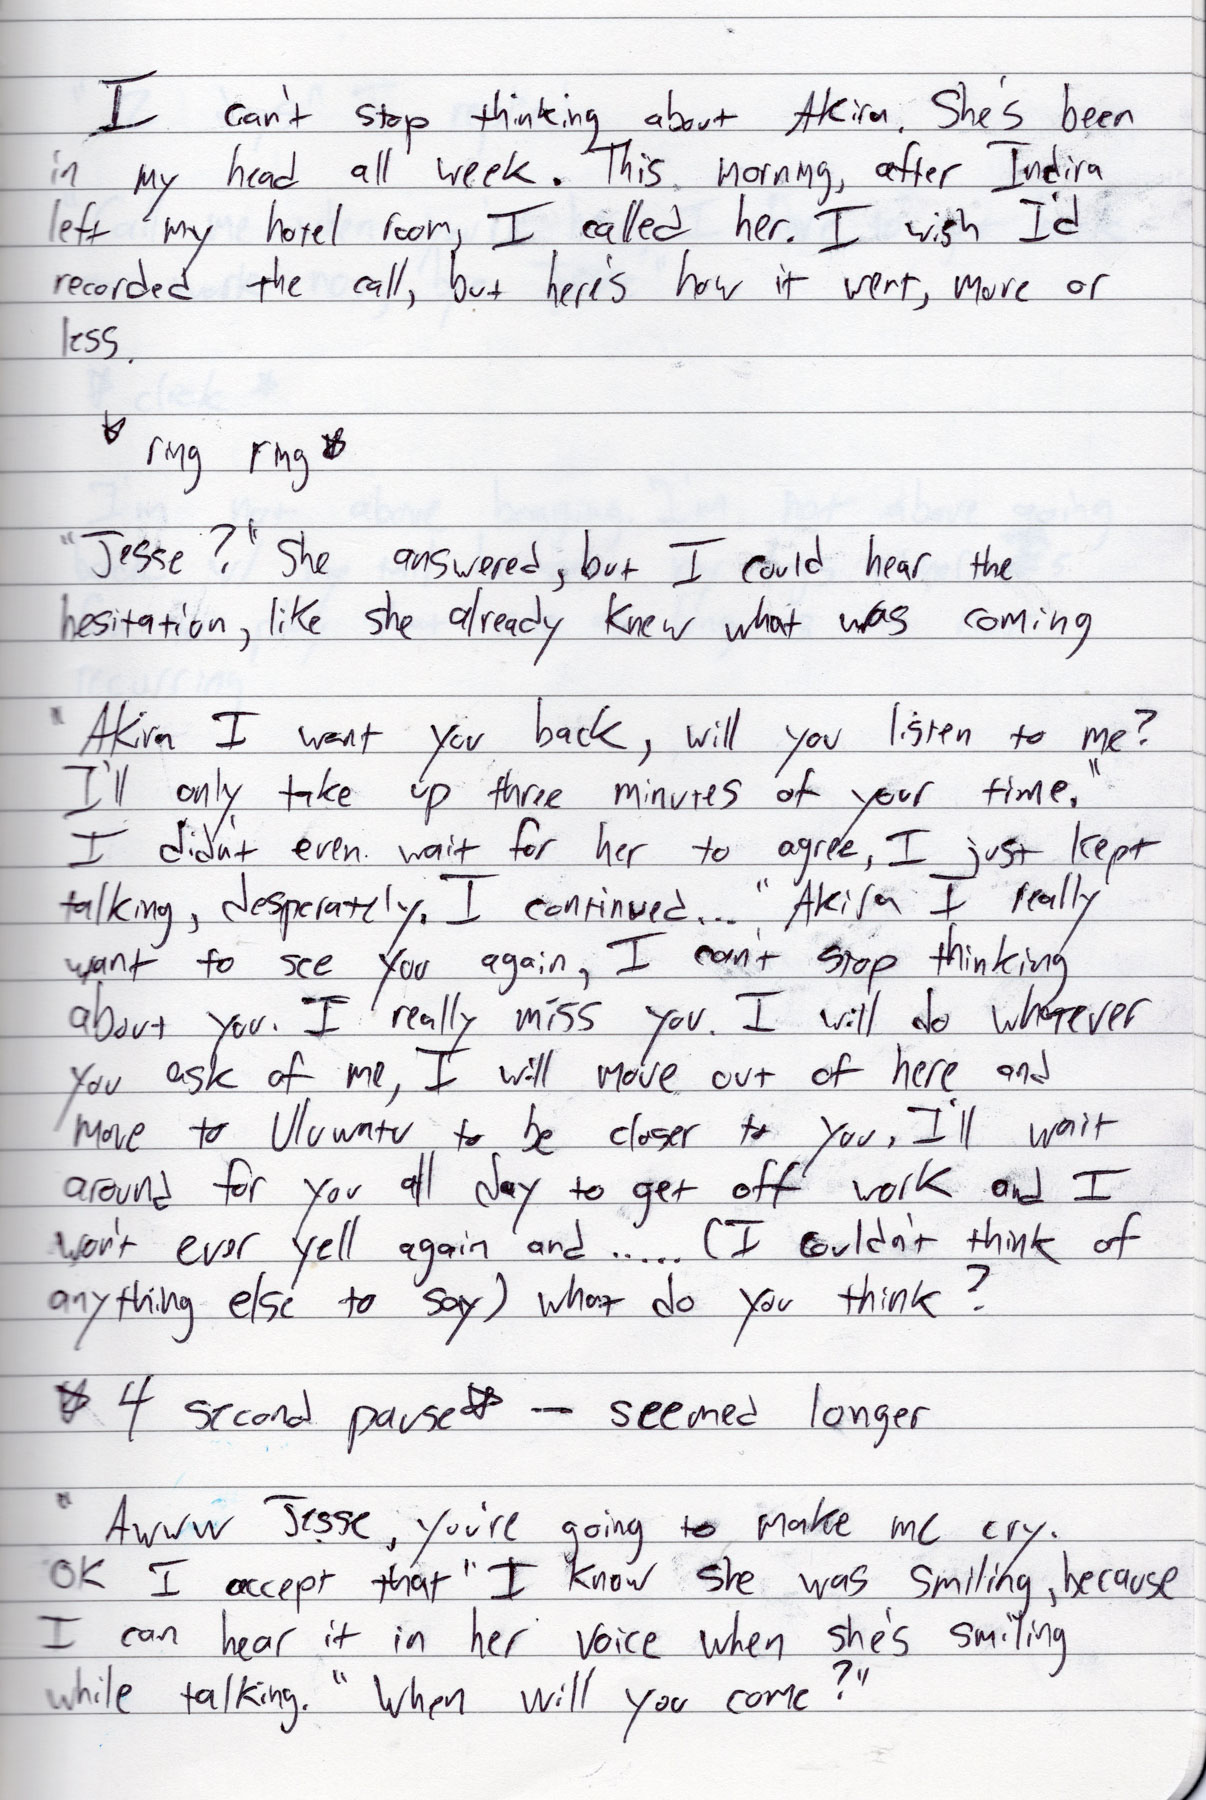 I can't stop thinking about Akira. She's been
in my head all week. This morning, after Indira
left my hotel room, I called her. I wish I'd
recorded the call, but here's how it went, more or
less.
* ring ring *
"Jesse?" She answered, but I could hear the
hesitation, like she already knew what was coming
"Akira I want you back, will you listen to me?
I'll only take up three minutes of your time."
I didn't even wait for her to agree, I just kept
talking, desperately. I continued... "Akira I really
want to see you again, I can't stop thinking
about you. I really miss you. I will do whatever
you ask of me, I will move out of here and
move to Uluwatu to be closer to you, I'll wait
around for you all day to get off work and I
won't ever yell again and ...... (I couldn't think of
anything else to say) what do you think?
* 4 second pause * — seemed longer
"Awww Jesse, you're going to make me cry.
OK I accept that" I know she was smiling, because
I can hear it in her voice when she's smiling
while talking. "When will you come?"